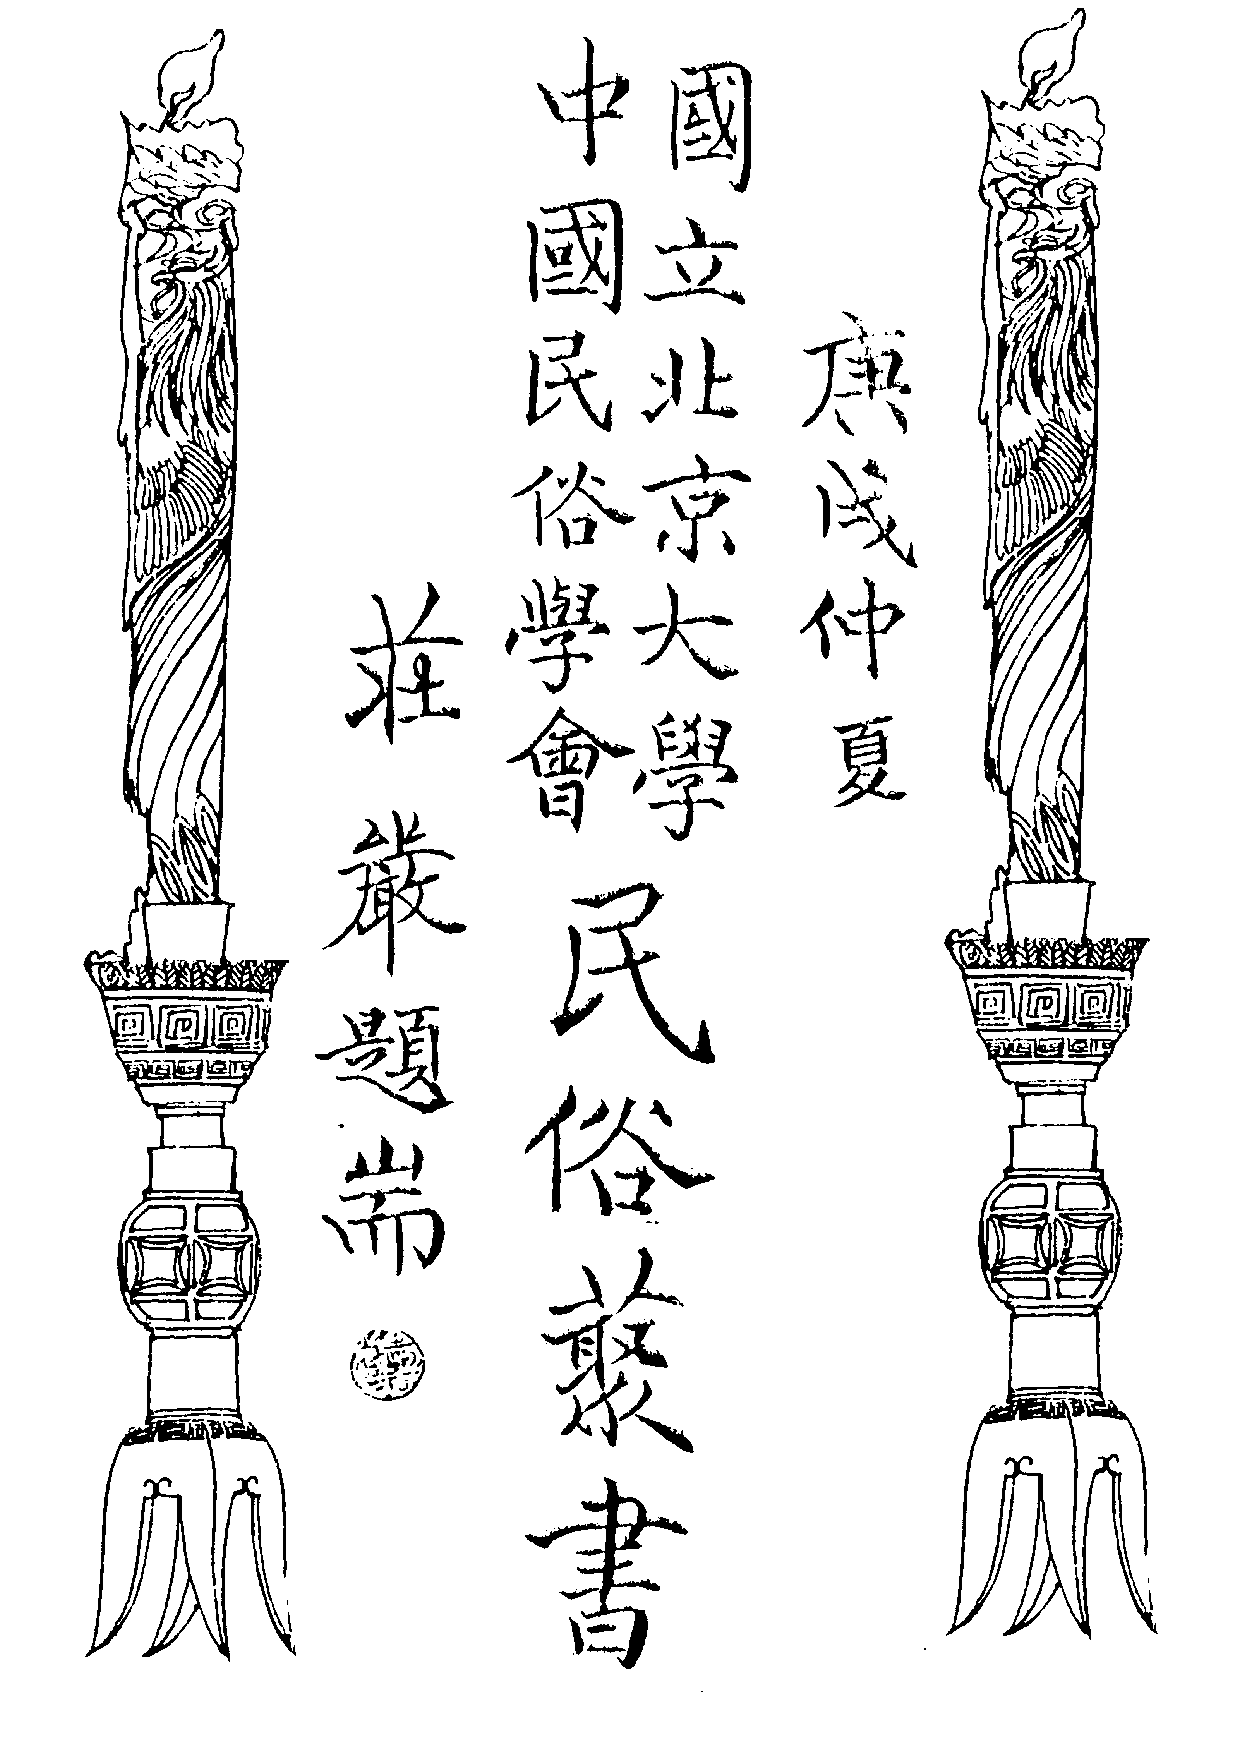 庚戌仲夏
國立北京大學
中國民俗學會
民俗叢書
莊嚴題耑